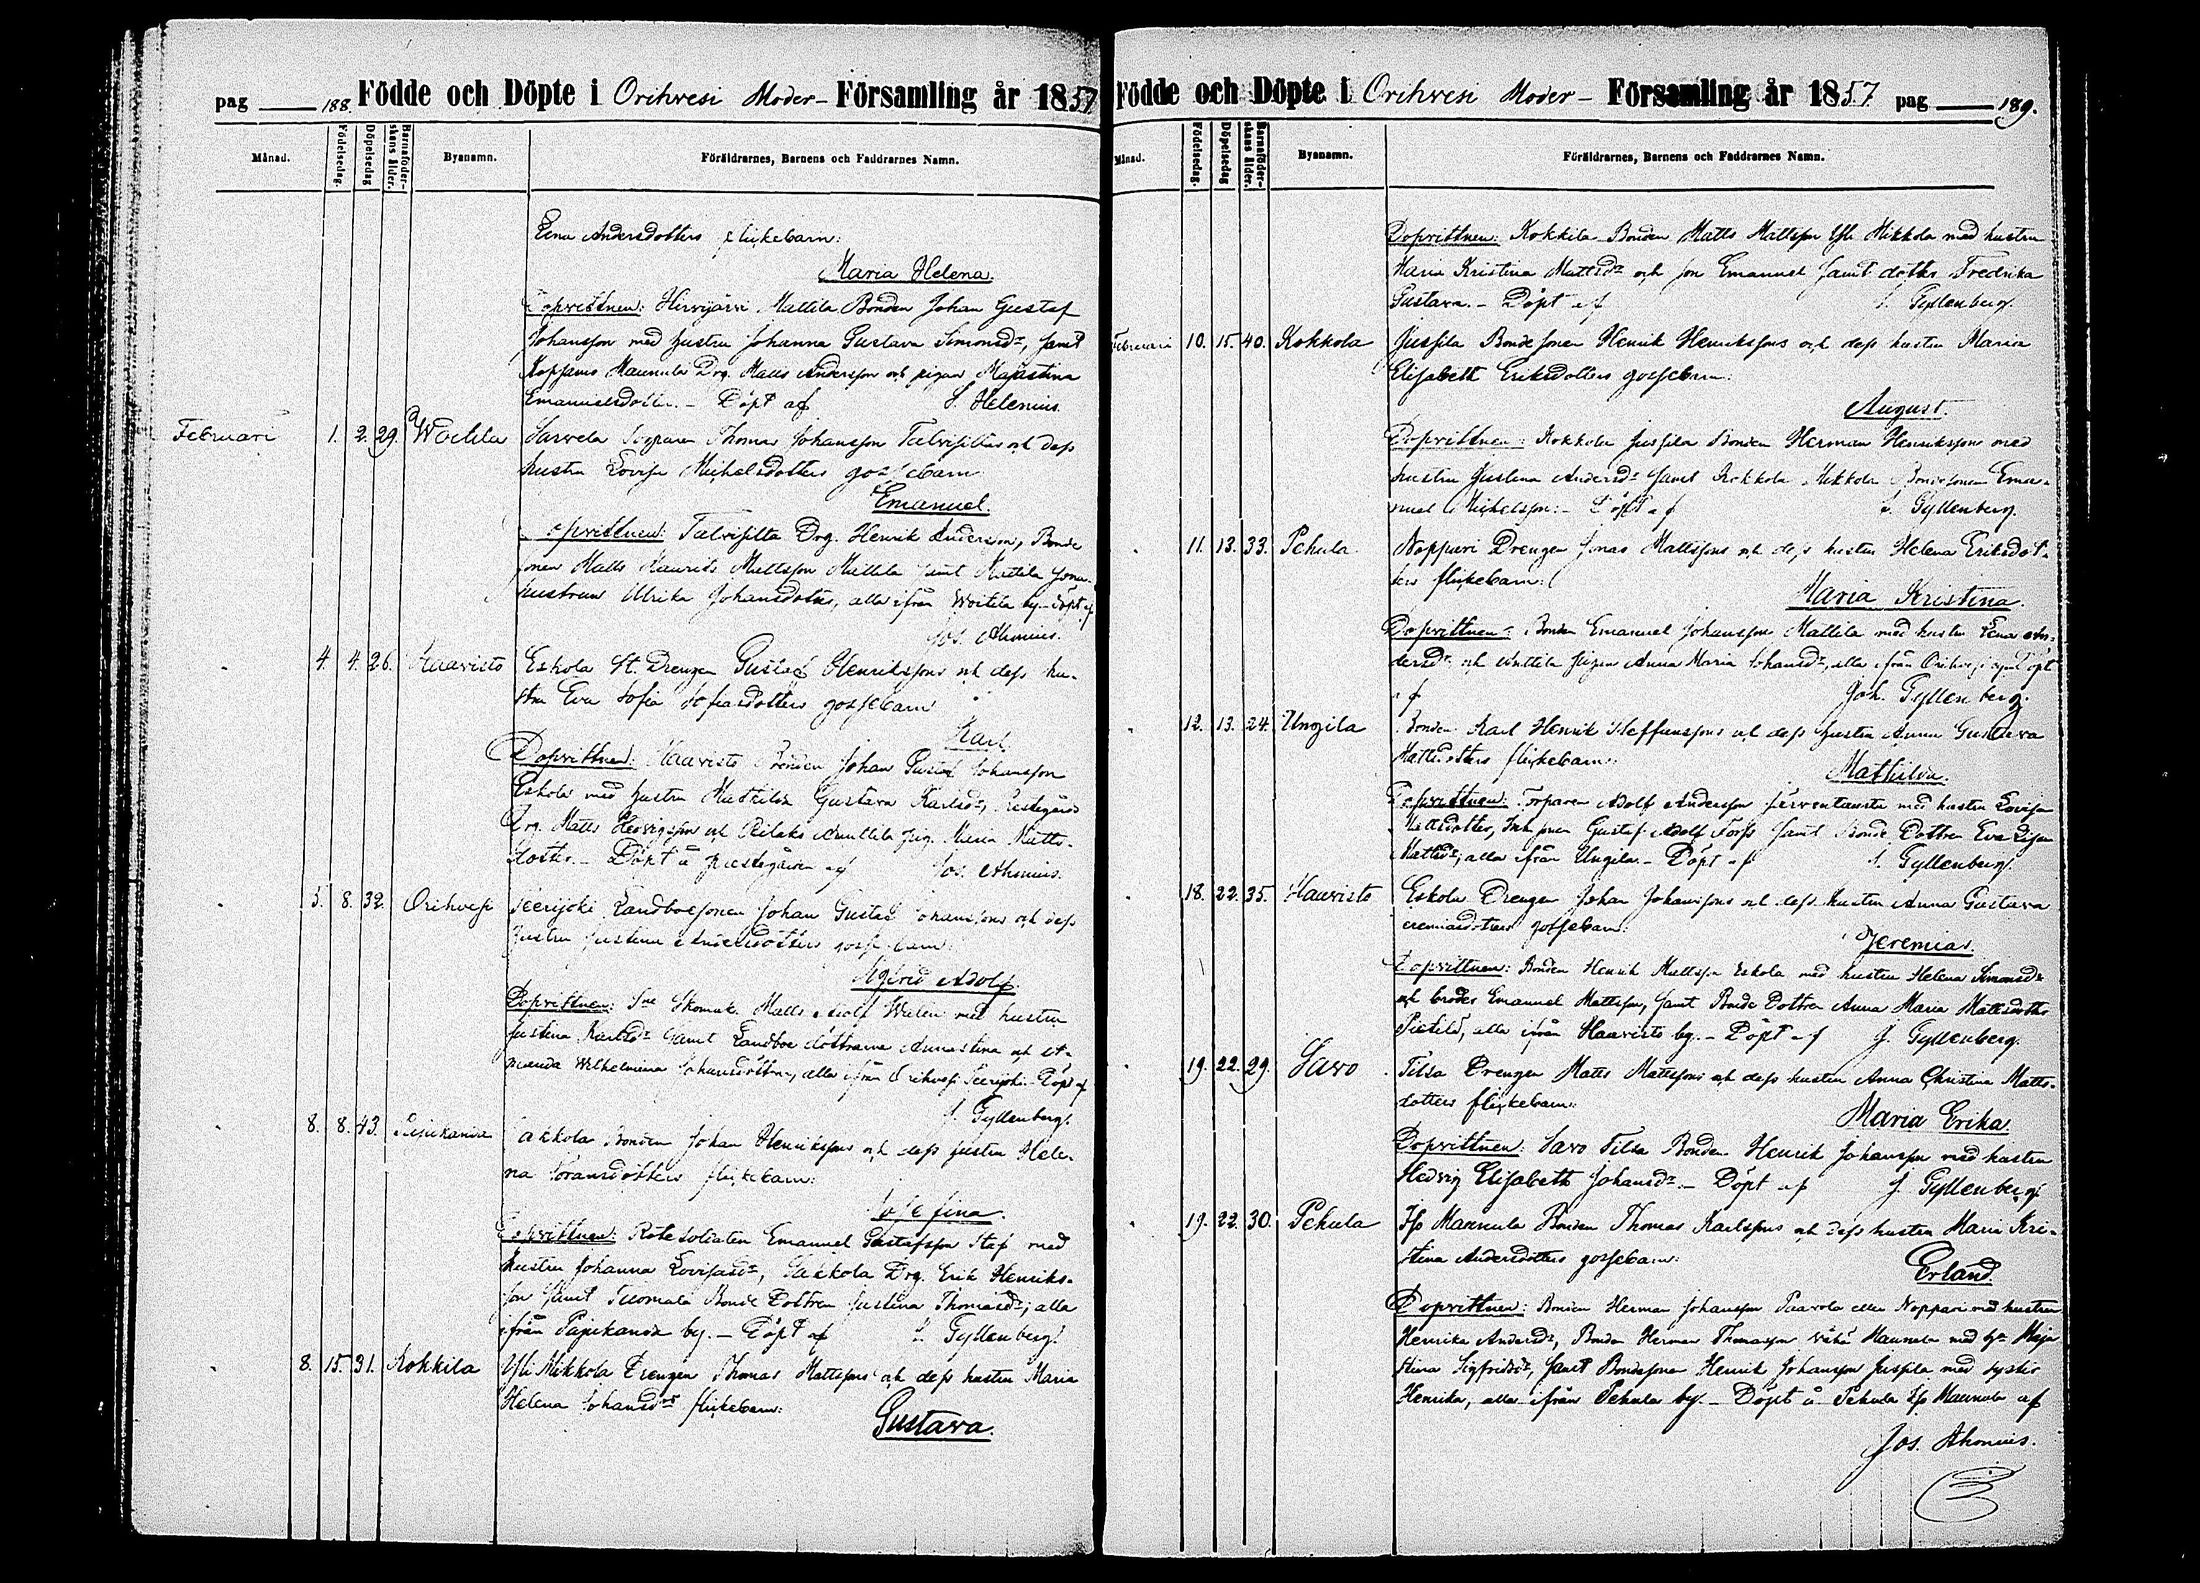 pag 188. Födde och Döpte i Orihvesi Moder- Församling år 1857
Månad. Födelsedag. Döpelsedag Barnaföderskans ålder. Byanamn. Föräldrarnes, Barnens och Faddrarnes Namn.
Lena Andersdotters flickebarn:
Maria Helena.
Dopvittnen: Hirvijärvi Mattila Bonden Johan Gustaf
Johansson med hustru Johanna Gustava Simonsdr, samt
Maunula Drg. Matts Andersson och pigan Majastina
Emanuelsdotter. - Döpt af J. Helenius.
Februari 1. 2. 29. Woitila Sarvela Torparen Thomas Johansson och dess
hustru Lovisa Michelsdotters gossebarn
Emanuel.
Dopvittnen: Drg. Henrik Andersson, Bonde
sonen Matts Mauritz Mattsson Mattila samt Mattila
hustrun Ulrika Johansdotter, alla ifrån Woitila by. - Döpt af
Jos. Ahonius.
4. 4. 26. Haavisto Eskola St. Drengen Gustaf Henrikssons och dess hu-
stru Eva Sofia Sofiasdotters gossebarn
Karl.
Dopvittnen: Haavisto Bonden Johan Gustaf Johansson
Eskola med hustru Mathilda Gustava Karlsdr, Prestegårds
Drg. Matts Hedvigsson och Anttila pig. Maria Matts-
dotter. - Döpt å prestegården af Jos. Ahonius.
5. 8. 32. Orihvesi Teerijoki Landboesonen Johan Gustaf Johanssons och dess
hustru Justina Andersdotters gossebarn:
Sigfrid Adolf.
Dopvittnen: Skomak. Matts Adolf Walin med hustru
Justina Karlsdr samt Landboe döttrarne Annastina och A-
manda Wilhelmina Johansdöttrar, alla ifrån Orihvesi Teerijoki. - Döpt af
J. Gyllenberg.
8. 8. 43. Pajukanda Sakkola Bonden Johan Henrikssons och dess hustru Hele-
na Göransdotters flickebarn:
Josefina.
Dopvittnen: Rotesoldaten Emanuel Gustafsson Staf med
hustru Johanna Lovisasdr, Sakkola Drg. Erik Henriks-
son samt Tuomala Bonde Dottren Justina Thomasdr; alla
ifrån Pajukanda by. - Döpt af J. Gyllenberg.
8. 15. 31. Kokkila Yli Mikkola Drengen Thomas Mattssons och dess hustru Maria
Helena Johansdrs flickebarn:
Gustava.
Födde och Döpte i Orihvesi Moder- Församling år 1857 pag 189.
Månad. Födelsedag. Döpelsedag Barnaföderskans ålder. Byanamn. Föräldrarnes, Barnens och Faddrarnes Namn.
Dopvittnen: Kokkila Bonden Matts Mattsson Yli Mikkola med hustru
Maria Kristina Mattsdr och son Emanuel samt dotter Fredrika
Gustava. - Döpt af J. Gyllenberg.
Februari 10. 15. 40. Kokkola Jussila Bondesonen Henrik Henrikssons och dess hustru Maria
Elisabeth Eriksdotters gossebarn:
August.
Dopvittnen: Kokkola Jussila Bonden Herman Henriksson med
hustru Justina Andersdr samt Kokkola Mikkola Bondesonen Ema-
nuel Michelsson: - Döpt af J. Gyllenberg.
11. 13. 33. Pehula Noppari Drengen Jonas Mattssons och dess hustru Helena Eriksdot-
ters flickebarn:
Maria Kristina.
Dopvittnen: Bonden Emanuel Johansson Mattila med hustru Lena An-
dersdr och Anttila pigan Anna Maria Johansdr, alla ifrån Orihvesi by. Döpt
af Joh. Gyllenberg.
12. 13. 24. Ungila Bonden Karl Henrik Steffanssons och dess hustru Anna Gustava
Mattsdotters flickebarn:
Mathilda.
Dopvittnen: Torparen Adolf Andersson Järventausta med hustru Lovisa
Mattsdotter, Gustaf Adolf Fors samt Bonde Dottren Eva Lisa
Mattsdr; alla ifrån Ungila. - Döpt af J. Gyllenberg.
18. 22. 35. Haavisto Eskola Drengen Johan Johanssons och dess hustru Anna Gustava
Jeremiasdotters gossebarn:
Jeremias.
Dopvittnen: Bonden Henrik Mattsson Eskola med hustru Helena Simonsdr
och broder Emanuel Mattsson, samt Bonde Dottren Anna Maria Mattsdotter
Pietilä, alla ifrån Haavisto by. - Döpt af J. Gyllenberg.
19. 22. 29. Savo Tilsa Drengen Matts Mattssons och dess hustru Anna Christina Matts-
dotters flickebarn:
Maria Erika.
Dopvittnen: Savo Tilsa Bonden Henrik Johansson med hustru
Hedvig Elisabeth Johansdr. - Döpt af J. Gyllenberg.
19. 22. 30. Pehula Iso Maunula Bonden Thomas Karlssons och dess hustru Maria Kri-
stina Andersdotters gossebarn:
Erland.
Dopvittnen: Bonden Herman Johansson Paavola eller Noppari med hustru
Henrika Andersdr, Bonden Herman Thomasson Vähä Maunula med hu Maja
Stina Sigfridsdr, samt Bondesonen Henrik Johansson Jussila med syster
Henrika, alla ifrån Pehula by. - Döpt å Pehula Iso Maunula af
Jos. Ahonius.